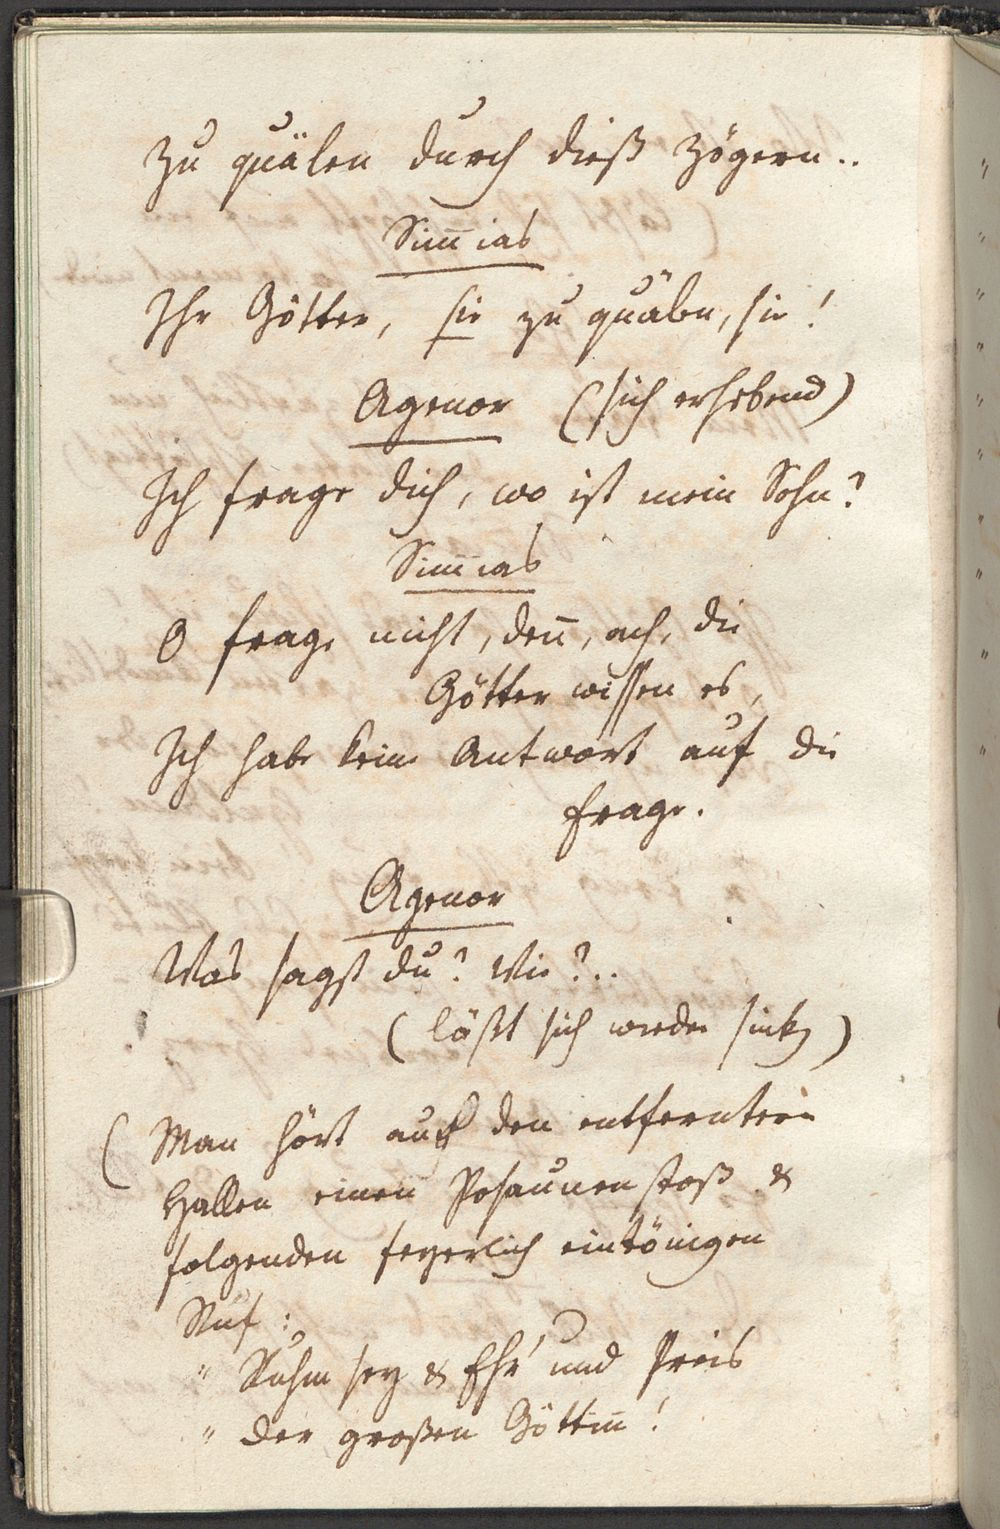 zu quälen durch dieß Zögern..
Sim̅ias
Ihr Götter, sie zu quälen, sie!
Agenor (sich erhebend)
Ich frage dich, wo ist mein Sohn?
Sim̅ias
O frage nicht, den̅, ach, die
Götter wissen es,
Ich habe keine Antwort auf die
Frage.
Agenor
Was sagst du? Wie?..
(läßt sich wieder sinken)
(Man hört aus den entfernteren
Hallen einen Posaunenstoß &
folgenden feyerlich eintönigen
Ruf:
" Ruhm sey & Ehr' und Preis
" der großen Göttin̅!